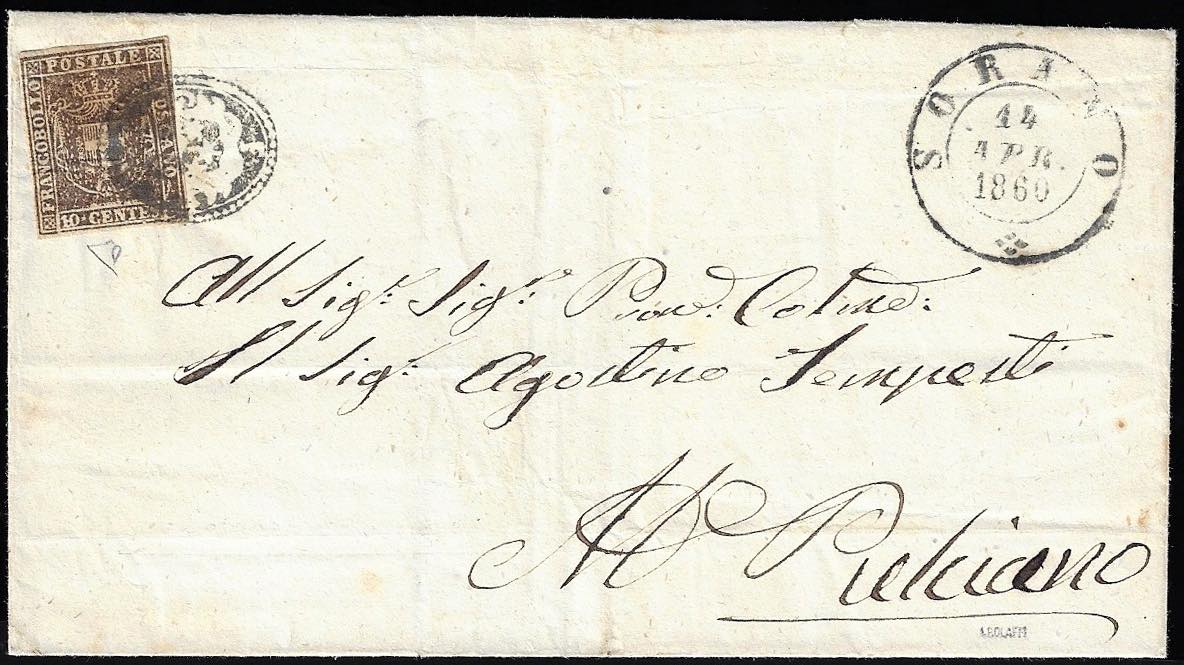 POSTALE
FRANCOBOLLO
TOSCANO
10 CENTES
SORANO
14
APR.
1860
All Sigr. Sigr. Pron. Colmo:
Al Sigr. Agostino Temperti
M. Pulciano
A.BOLAFFI